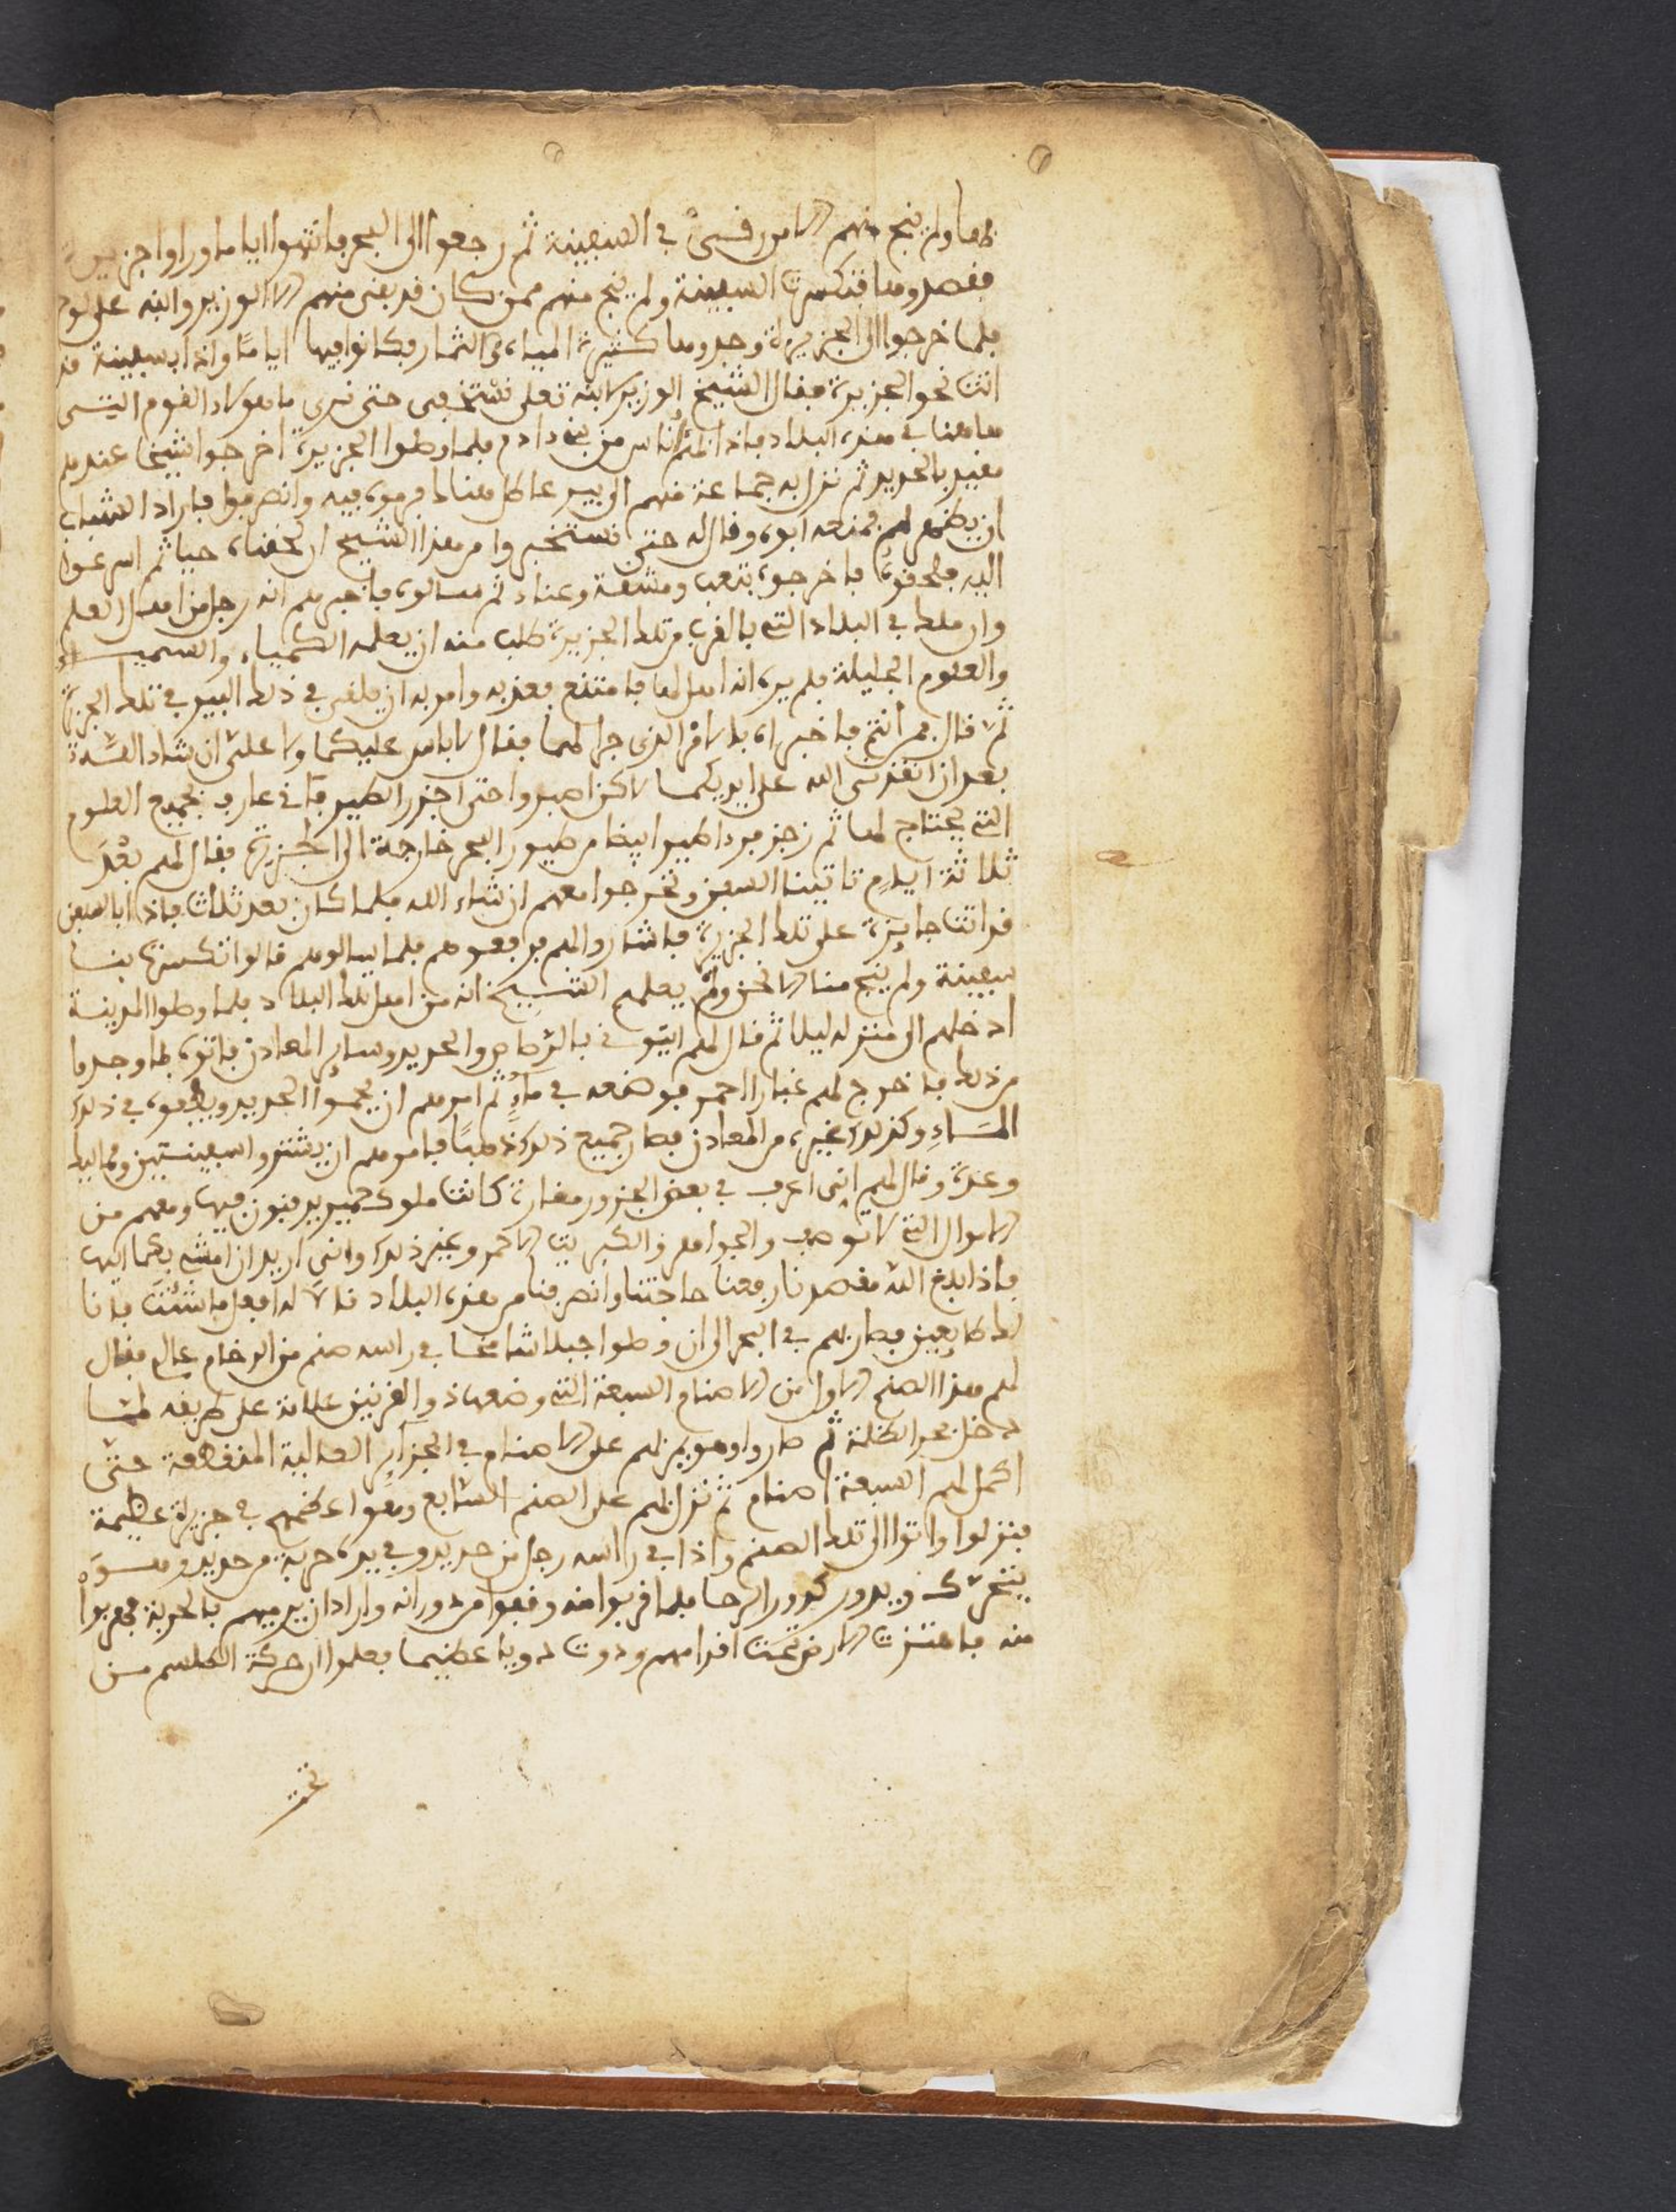 ولم ينج منهم الا من بقى في السفينة ثم رجعوا الى البحر فاقاموا اياما وراوا جزيرة
فقصدوها فتكسرت السفينة ولم ينج منهم ممن كان قد بقى منهم الا الوزير وابنه على لوح
فلما خرجوا الى الجزيرة وجدوها كثيرة المياه والثمار فكانوا فيها اياما واذا بسفينة قد
اتت نحو الجزيرة فقال الشيخ الوزير لابنه تعلى نستخفى حتى نرى ما هولاء القوم التى
هاهنا في هذه البلاد فاذا اناس من بنى ادم فلما وصلوا الجزيرة اخرجوا شيخا عندهم
مقيد بالحديد ثم نزل به جماعة منهم الى بير هناك فرموه فيه وانصرفوا فاراد الشاب
ان يظهر لهم فمنعه ابوه وقال له حتى نستخبروا من هذا الشيخ ان لحقناه حيا ثم اسرعوا
اليه فلحقوه فاخرجوه بتعب ومشقة وعناء ثم سالوه فاخبرهم انه رجل من اهل العلم
وان ملك في البلاد التى بالقرب من تلك الجزيرة طلب منه ان يعلمه الكمياء والسمياء
والعلوم الجليلة فلم يره انه اهل لها فامتنع فعذبه وامر به ان يلقى في ذلك البير في تلك الجزيرة
ثم قال من انتم فاخبراه بالامر الذى جرا لهما فقال لا باس عليكما ولا على ان شاء الله
بعد ان انقذنى الله على ايديكما لاكن اصبروا حتى اجزر الطير فانى عارف بجميع العلوم
التى يحتاج لها ثم زجر طيرا ابيضا من طيور البحر خارجة الى الجزيرة فقال لهم بعد
ثلاثة ايام تاتينا السفن ونخرجوا معهم ان شاء الله فلما كان بعد ثلاث فاذا بالسفن
قد اتت جايزة على تلك الجزيرة فاشاروا لهم فرفعوهم فلما سالوهم قالوا تكسرت بنا
سفينة ولم ينج منا الا نحن ولم يعلمهم الشيخ انه من اهل تلك البلاد فلما وصلوا المدينة
ادخلهم الى منزله ليلا ثم قال لهم ايتونى بالرصاص والحديد وساير المعادن فاتوه بما وجدوا
من ذلك فاخرج لهم غبارا احمر فوضعه في ماء ثم امرهم ان يحموا الحديد ويطفوه في ذلك
الماء وكذلك غيره من المعادن فصار جميع ذلك ذهبا فامرهم ان يشتروا سفينتين ومماليك
وعدة وقال لهم انى اعرف في بعض الجزور مغارة كانت ملوك حمير يدفنون فيها ومعهم من
الاموال التى لا توصف والجواهر والكبريت الاحمر وغير ذلك وانى اريد ان امشى بكما اليها
فاذا بلغ الله مقصدنا رفعنا حاجتنا وانصرفنا من هذه البلاد قالا له افعل ما شئت فانا
لك طايعين فصار بهم في البحر الى ان وصلوا جبلا شامخا في راسه صنم من الرخام عال فقال
لهم هذا الصنم الاول من الاصنام السبعة التى وضعها ذو القرنين علامة على طريقه لما
دخل بحر الظلمة ثم صاروا وهو يمر بهم على الاصنام في الجزاير العالية المنقطعة حتى
اكمل لهم السبعة اصنام ثم نزل بهم على الصنم السابع وهو اعظمهم في جزيرة عظيمة
فنزلوا واتوا الى تلك الصنم واذا في راسه رجل من حديد وفي يده حربة من حديد وهو
يتحرك ويدور كدور الرحا فلما قربوا منه وقفوا من دورانه واراد ان يرميهم بالحربة فهربوا
منه فاهتزت الارض تحت اقدامهم ودوت دويا عظيما فعلموا ان حركة الطلسم من
تحت